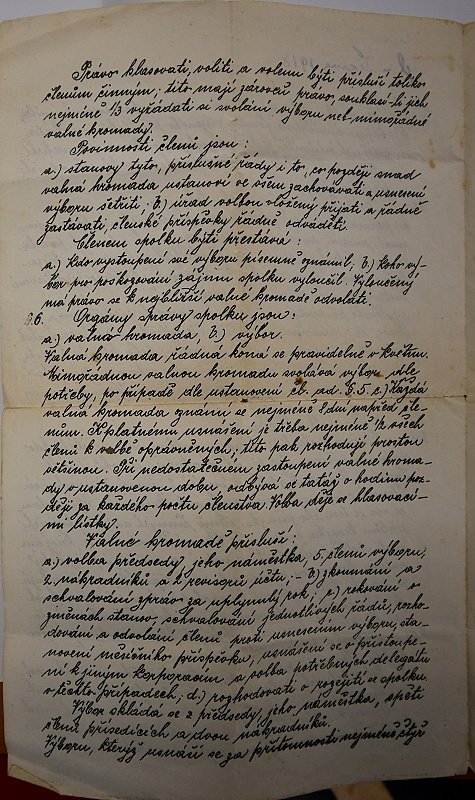 Právo hlasovati, voliti a volenu býti přísluší toliko
členům činným; tito mají zároveň právo, souhlasí-li jich
nejméně 1/3 vyžádati si svolání výboru neb mimořádné
valné hromady.
Povinností členů jsou:
a.) stanovy tyto, příslušné řády i to, co později snad
valná hromada ustanoví ve všem zachovávati a usnesení
výboru šetřiti; b.) úřad volbou vložený přijati a řádně
zastávati, členské příspěvky řádně odváděti.
Členem spolku býti přestává:
a.) Kdo vystoupení své výboru písemně oznámil; b.) koho vý-
bor pro poškozování zájmů spolku vyloučil. Vyloučený
má právo se k nejbližší valné hromadě odvolati.
§.6. Orgány správy spolku jsou:
a.) valná hromada, b.) výbor.
Valná hromada řádná koná se pravidelně v květnu.
Mimořádnou valnou hromadu svolává výbor dle
potřeby, po případě dle ustanovení čl. ad. §.5. c.) Každá
valná hromada oznámí se nejméně 8 dní napřed čle-
nům. K platnému usnášení je třeba nejméně 1/2 všech
členů k volbě oprávněných; tito pak rozhodují prostou
většinou. Při nedostatečném zastoupení valné hroma-
dy v ustanovenou dobu, odbývá se tatáž o hodinu poz-
ději za každého počtu členstva. Volba děje se hlasovací-
mi lístky.
Valné hromadě přísluší:
a.) volba předsedy, jeho náměstka, 5 členů výboru,
2 náhradníků a 2 revisorů účtů; - b.) zkoumání a
schvalování zpráv za uplynulý rok; c.) rokování o
změnách stanov, schvalování jednotlivých řádů, rozho-
dování a odvolání členů proti usnesením výboru, sta-
novení měsíčního příspěvku, usnášení se o přistoupe-
ní k jiným korporacím a volba potřebných delegátů
v těchto případech; d.) rozhodovati o rozejití se spolku.
Výbor skládá se z předsedy, jeho náměstka, spěti
členů přísedících a dvou náhradníků.
Výboru, kterýž usnáší se za přítomnosti nejméně čtyř